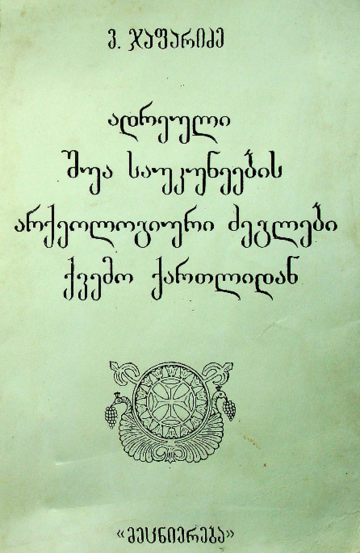 ვ. ჯაფარიძე
ადრეული
შუა საუკუნეების
არქეოლოგიური ძეგლები
ქვემო ქართლიდან
«მეცნიერება»